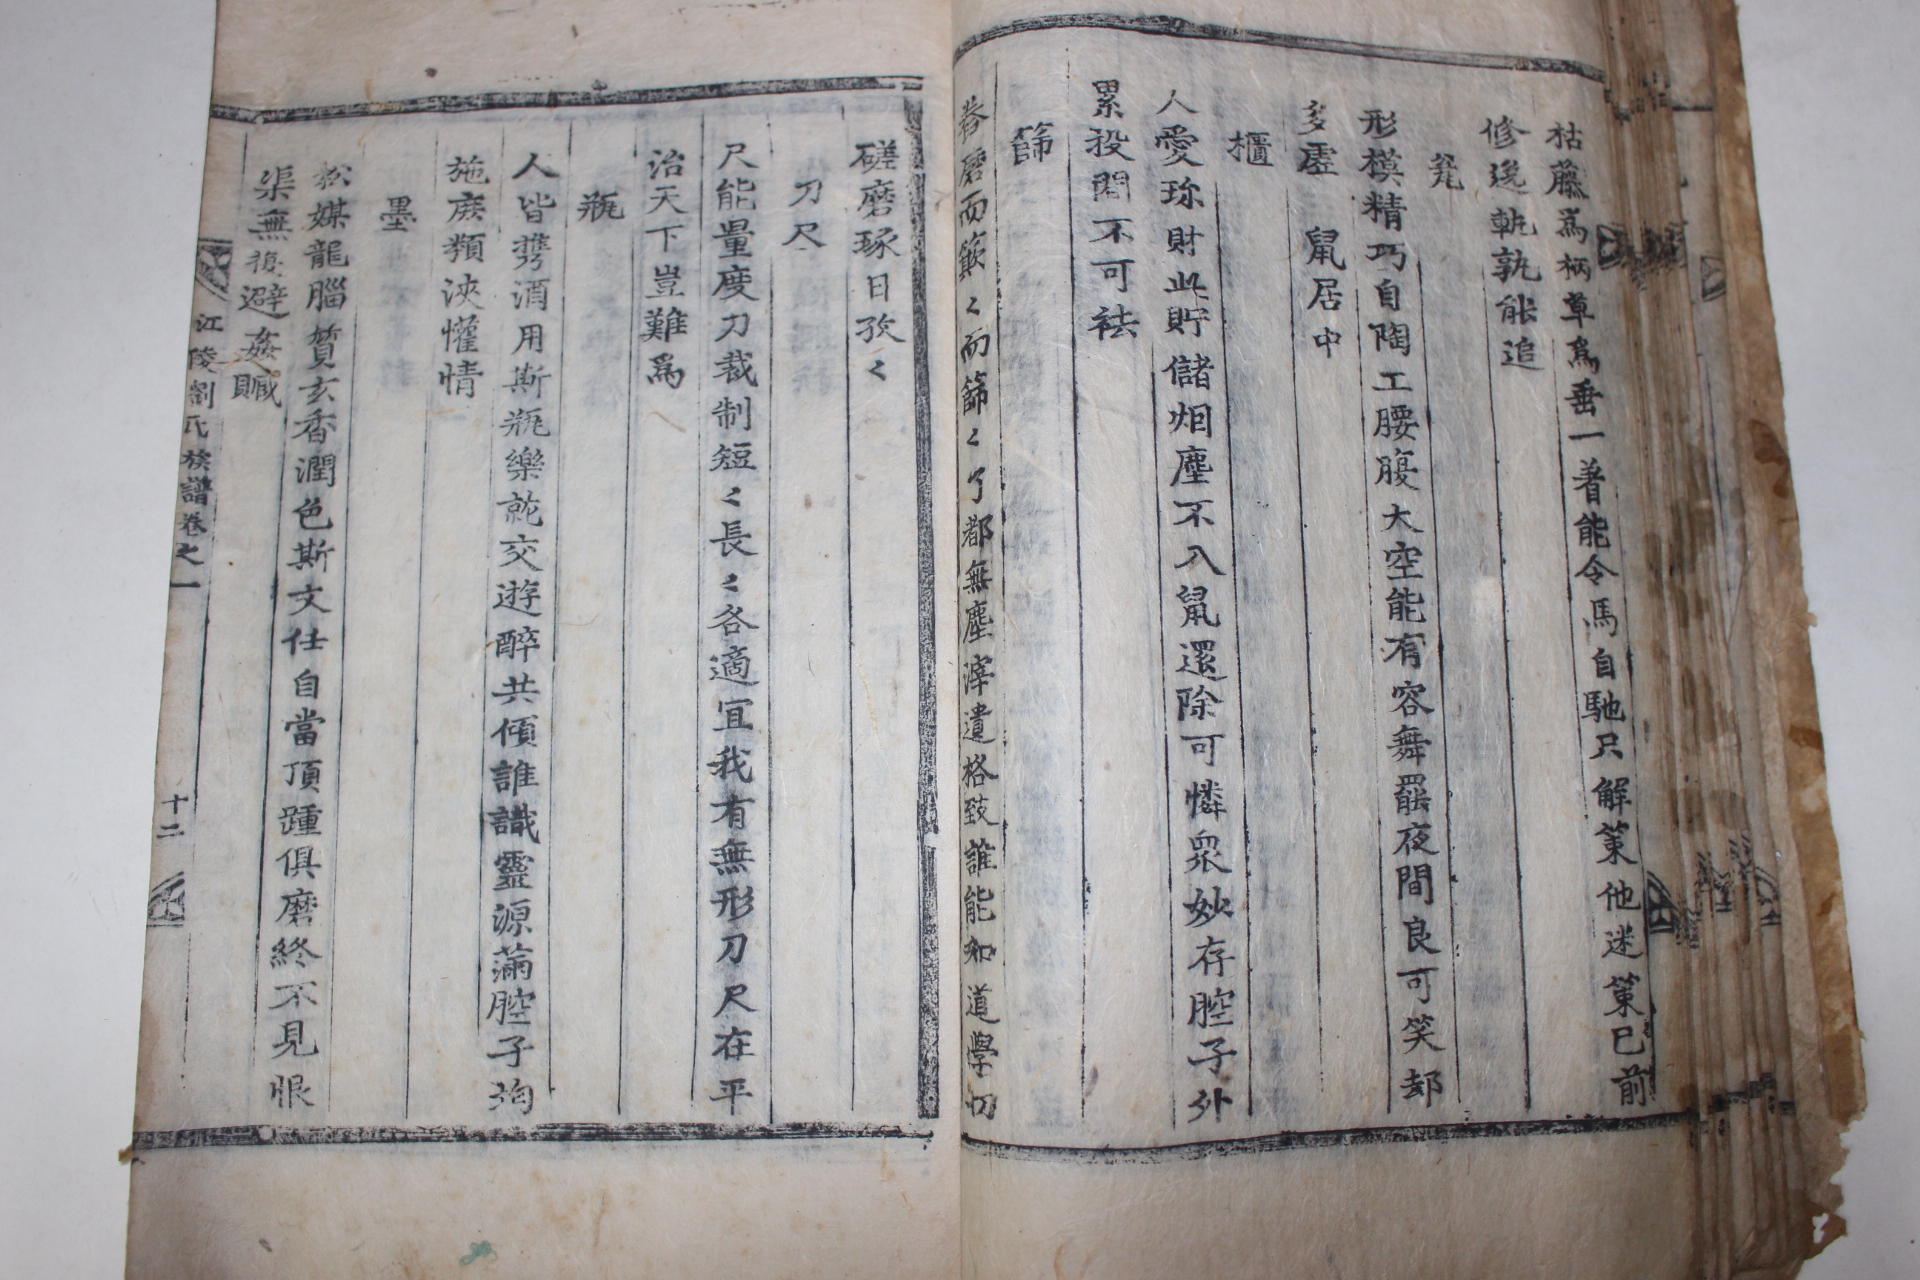 枯藤爲柄草爲垂一着能令馬自馳只解策他迷策已前
修逸軌孰能追
瓮
形模精巧自陶工腰腹大空能有容舞罷夜間良可笑却
多虛鼠居中
櫃
人愛珎財此貯儲烟塵不入鼠還除可憐衆妙存腔子外
累投間不可袪
篩
舂磨而簸〻而篩〻了都無塵滓遺格致誰能知道學切
磋磨琢日孜〻
刀尺
尺能量度刀裁制短〻長〻各適宜我有無形刀尺在平
治天下豈難爲
瓶
人皆携酒用斯瓶樂就交遊醉共傾誰識靈源滿腔子均
施庶類浹懽情
墨
松媒龍腦質玄香潤色斯文任自當頂踵俱磨終不見恨
渠無復避姦贓
江陵劉氏族譜卷之一
十二